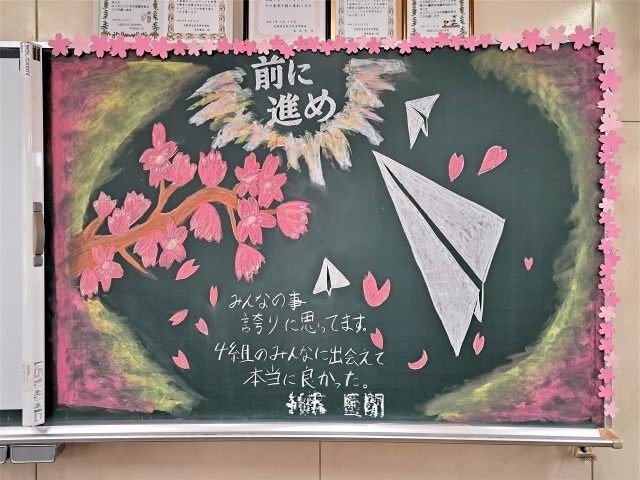 前に
進め
みんなの事
誇りに思ってます。
4組のみんなに出会えて
本当に良かった。